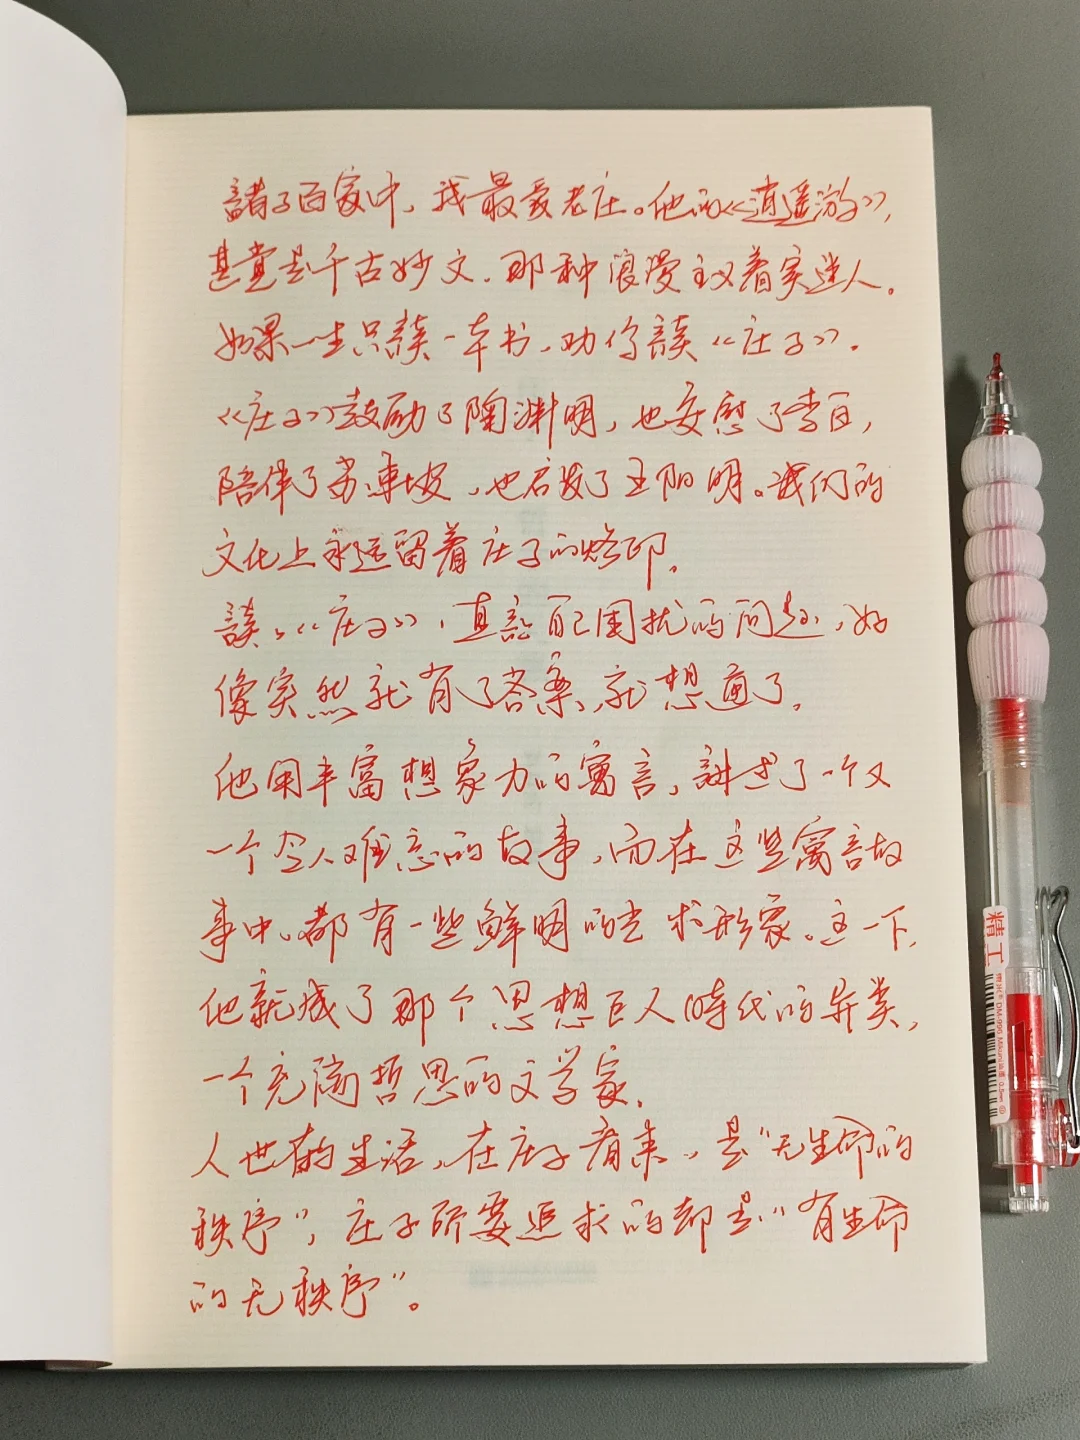 諸子百家中，我最爱老庄。他的《逍遥游》，
甚觉是千古妙文，那种浪漫主义着实迷人。
如果一生只读一本书，劝你读《庄子》。
《庄子》鼓励了陶渊明，也安慰了李白，
陪伴了苏東坡，也启发了王阳明。我们的
文化上永远留着庄子的烙印。
读《庄子》，直説自己困扰的问题，好
像突然就有了答案，就想通了。
他用丰富想象力的寓言，讲述了一个又
一个令人难忘的故事，而在这些寓言故
事中，都有一些鲜明的艺术形象。这一下，
他就成了那个思想巨人時代的异类，
一个充满哲思的文学家。
人世有的生活，在庄子看来，是“无生命的
秩序”，庄子所要追求的却是“有生命
的无秩序”。
精工
DM-996 0.5mm